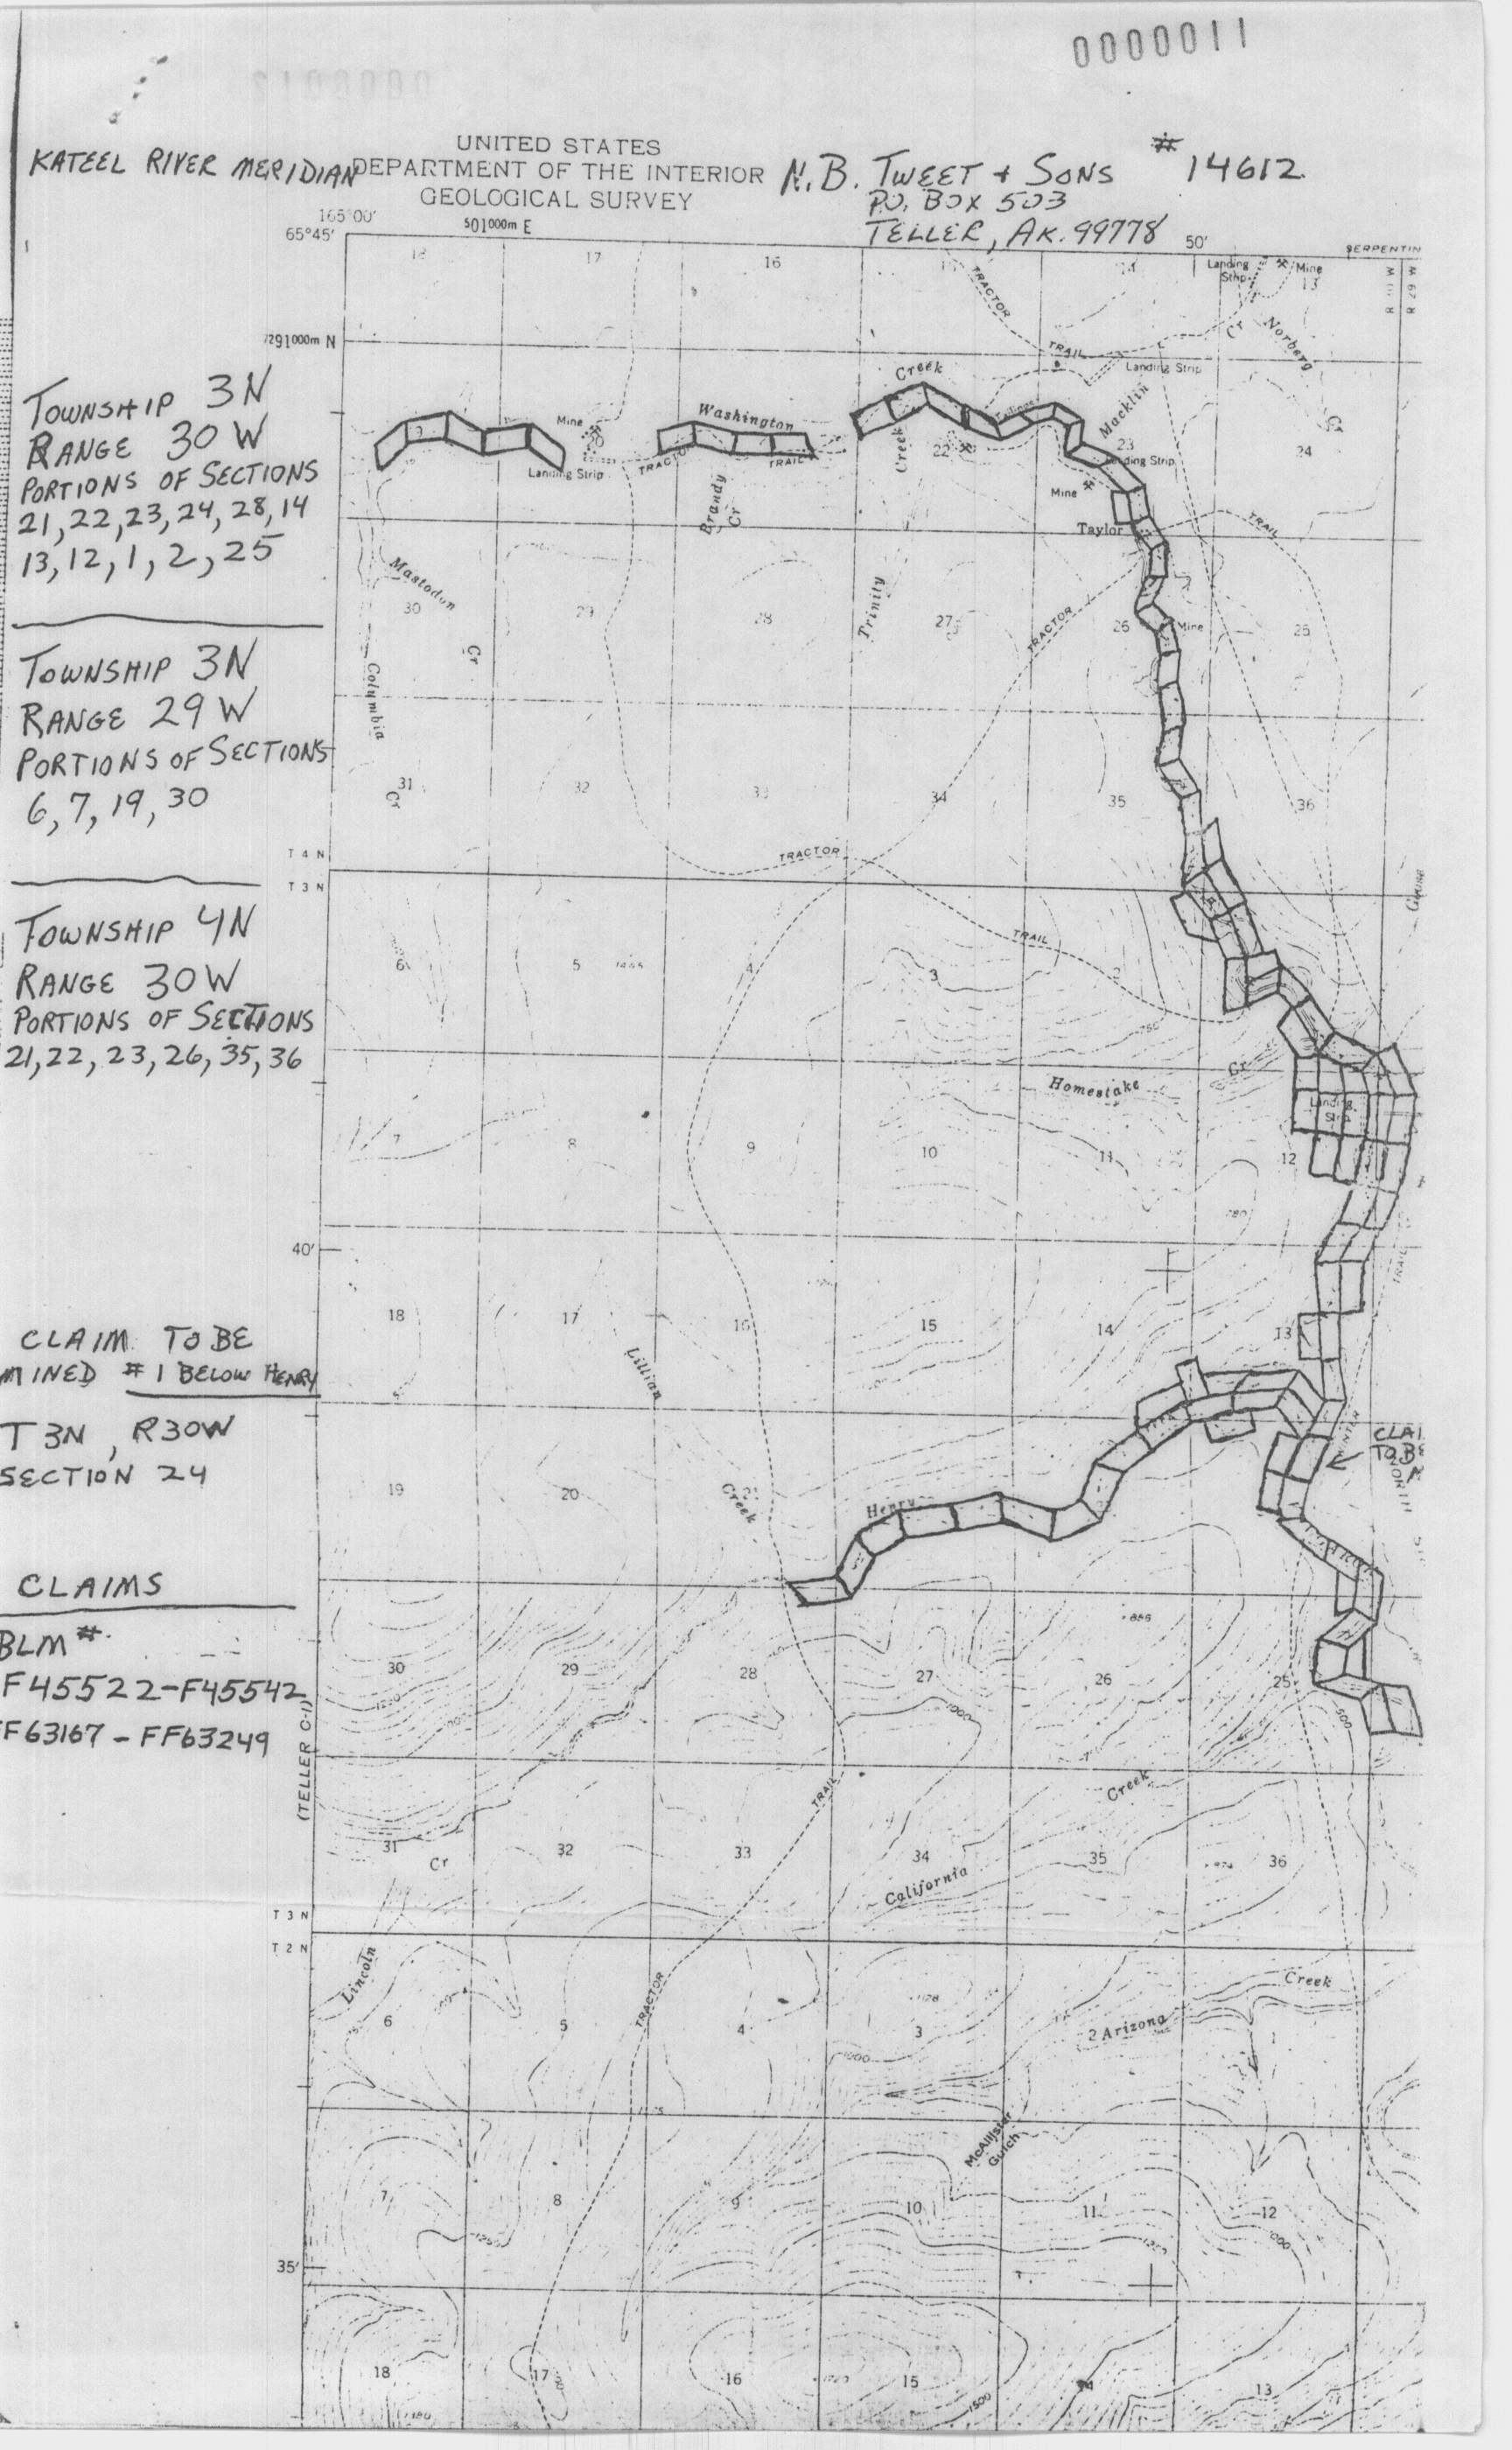 0000011
UNITED STATES
KATEEL RIVER MERIDIAN DEPARTMENT OF THE INTERIOR N.B. TWEET + SONS # 14612
GEOLOGICAL SURVEY
P.O. BOX 503
TELLER, AK. 99778
165°00'
501000m E
65°45'
50'
SERPENTIN
18 17 16 15 14 13
Landing Strip
Mine
TRACTOR
TRAIL
Cr Norberg
Cr
7291000m N
Landing Strip
Creek
Macklin
Washington
Mine
20
22
23
24
Landing Strip
TRACTOR
TRAIL
Landing Strip
Creek
Mine
Brandy
Cr
Taylor
TRAIL
TOWNSHIP 3N
RANGE 30 W
PORTIONS OF SECTIONS
21, 22, 23, 24, 28, 14
13, 12, 1, 2, 25
Mastodon
Cr
30 29 28 27 26 25
Trinity
TRACTOR
Mine
Columbia
Cr
TOWNSHIP 3N
RANGE 29 W
PORTIONS OF SECTIONS
6, 7, 19, 30
31 32 33 34 35 36
T 4 N
T 3 N
TRACTOR
TRAIL
TOWNSHIP 4N
RANGE 30 W
PORTIONS OF SECTIONS
21, 22, 23, 26, 35, 36
6 5 4 3 2
Homestake
Cr
Landing Strip
7 8 9 10 11 12
40'
TRAIL
18 17 16 15 14 13
CLAIM TO BE
MINED # 1 BELOW HENRY
T 3N, R30W
SECTION 24
Lillian
Creek
CLAI
TO BE
19 20 21
Henry
NORTH
CLAIMS
BLM #
F45522-F45542
FF63167 - FF63249
886
30 29 28 27 26 25
1000
500
(TELLER C-1)
TRAIL
Creek
31 32 33 34 35 36
Cr
California
T 3 N
T 2 N
Lincoln
TRACTOR
Creek
6 5 4 3 2
Arizona
1000
McAllister
Gulch
7 8 9 10 11 12
1000
35'
18 17 16 15 14 13
1500